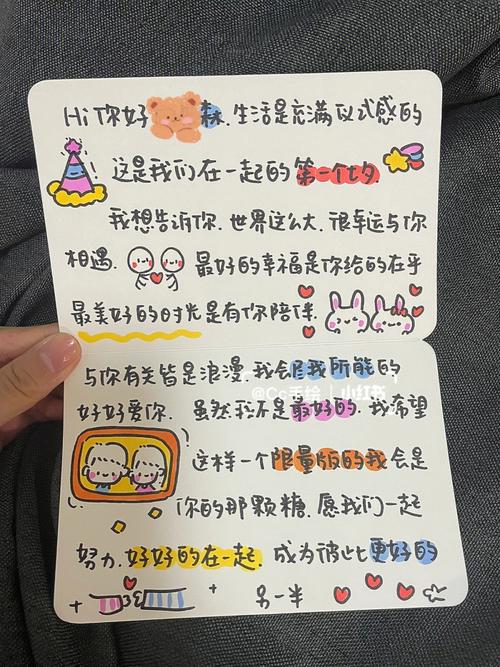 Hi 你好 森.生活是充满仪式感的
这是我们在一起的第一个七夕.
我想告诉你.世界这么大.很幸运与你
相遇. 最好的幸福是你给的在乎
最美好的时光是有你陪伴.
与你有关皆是浪漫.我会尽我所能的
@Cc手绘 小红书
好好爱你. 虽然我不是最好的.我希望
这样一个限量版的我会是
你的那颗糖.愿我们一起
努力.好好的在一起.成为彼此更好的
另一半